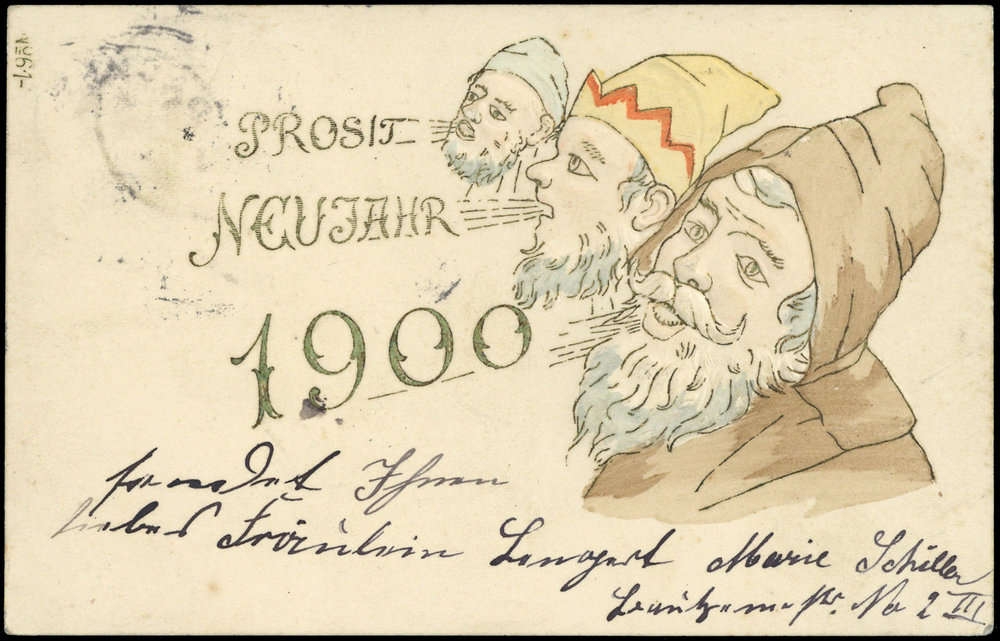 PROSIT
NEUJAHR
1900
sendet Ihnen
liebes Fräulein Langert Marie Schiller
No 2 III